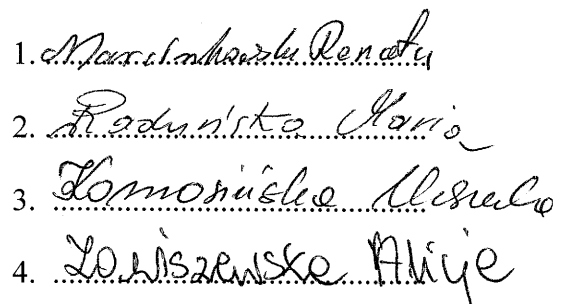 1. Marcinkowska Renata
2. Radyńska Maria
3. Komosińska Urszula
4. Zawiszewska Alicja